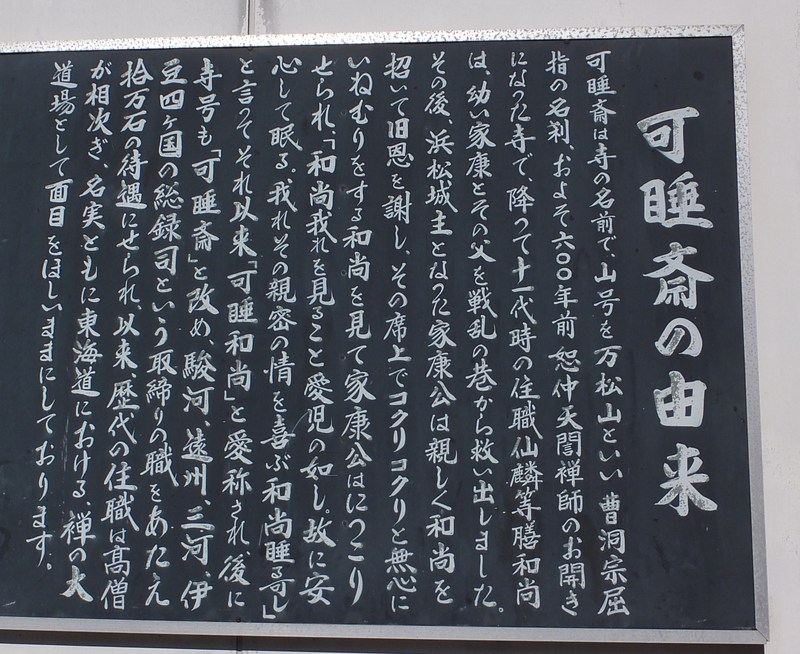 可睡斎の由来
可睡斎は寺の名前で、山号を万松山といい曹洞宗屈
指の名刹、およそ六〇〇年前恕仲天誾禅師のお開き
になった寺で、降って十一代時の住職仙麟等膳和尚
は、幼い家康とその父を戦乱の巷から救い出しました。
その後、浜松城主となった家康公は親しく和尚を
招いて旧恩を謝し、その席上でコクリコクリと無心に
いねむりをする和尚を見て家康公はにっこり
せられ、「和尚我れを見ること愛児の如し。故に安
心して眠る。我れその親密の情を喜ぶ和尚睡る可し」
と言ってそれ以来「可睡和尚」と愛称され後に
寺号も「可睡斎」と改め、駿河、遠州、三河、伊
豆四ヶ国の総録司という取締りの職をあたえ
拾万石の待遇にせられ、以来歴代の住職は高僧
が相次ぎ、名実ともに東海道における禅の大
道場として面目をほしいままにしております。